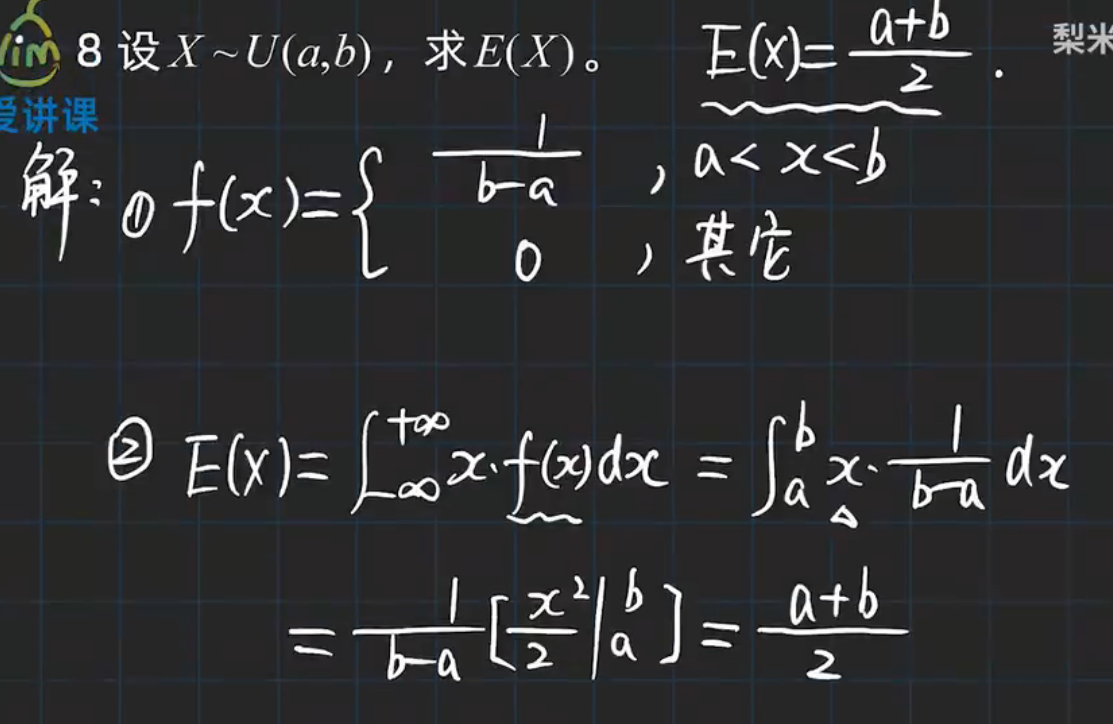 8 设 X ~ U(a,b)，求 E(X)。 E(X)= \frac{a+b}{2} .
梨米
爱讲课
解: ① f(x)= { \frac{1}{b-a} , a < x < b
0 , 其它
② E(X)= ∫_{-∞}^{+∞} x·f(x)dx = ∫_a^b x· \frac{1}{b-a} dx
= \frac{1}{b-a} [ \frac{x^2}{2} |_a^b ] = \frac{a+b}{2}